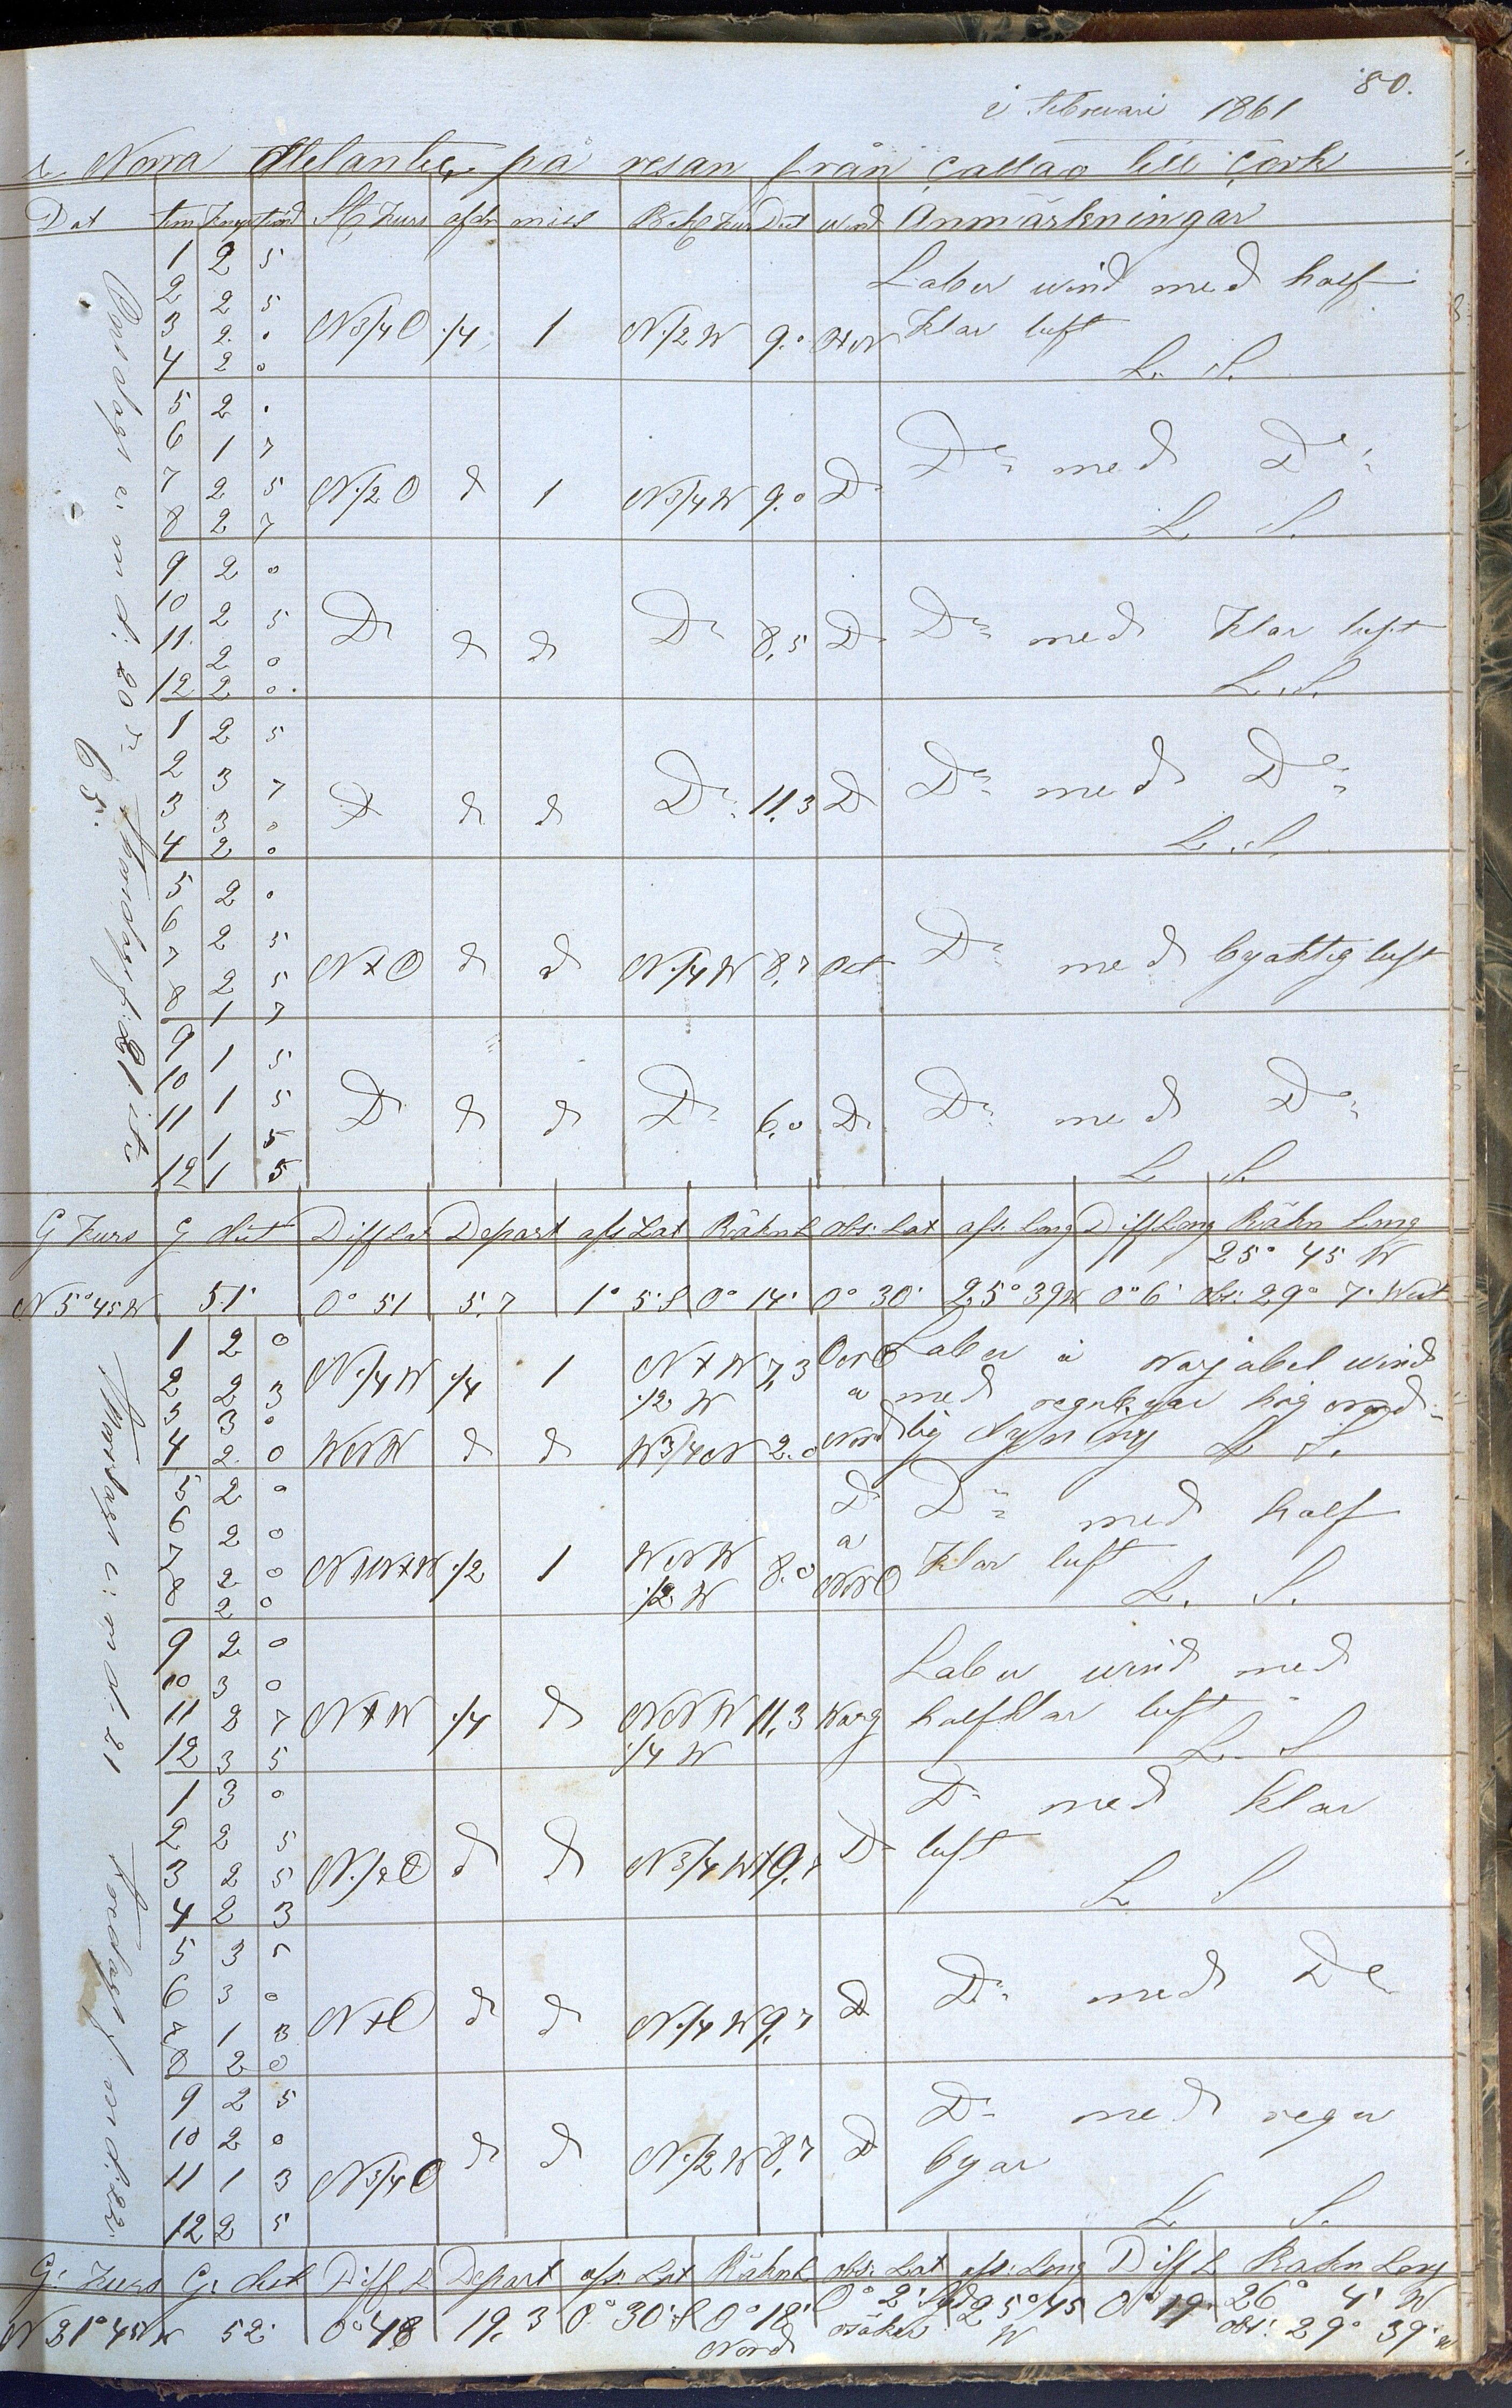 80.
i Februari 1861
Norra Atelantic på resan från Callao till Cork
Dat tim Knop Kurs afdr miss Kurs Dist wind Anmärkningar
1 2 5 Laber wind med half
2 2 5
3 2 0 N3/4O 1/4 1 N1/2W 9.0 klar luft
4 2 0 L. S.
5 2 0
6 1 7 Do med Do
7 2 5 N1/2O d 1 N3/4W 9.0 D
8 2 7 L. S.
9 2 0
10 2 5 Do d d Do 8,5 D Do med klar luft
11 2 0
12 2 0 L. S.
1 2 5
2 3 7 D d d Do 11,3 D Do med Do
3 3 0
4 2 0 L. S.
5 2 0
6 2 5 NxO d d N1/4W 8,7 Ost Do med byaktig luft
7 2 5
8 1 7
9 1 5
10 1 5 D d d Do 6,0 D Do med Do
11 1 5
12 1 5 L. S.
Onsdag e. m d: 20 Thorsdag f. 21
G Kurs G dist Diff Lat Depart afs Lat Räkn L obs: Lat afs: Long Diff Long Räkn Long
25° 45 W
N5°45W 51' 0° 51 5.7 1° 5'S 0° 14' 0° 30' 25° 39W 0° 6' obs: 29° 7' West
1 2 0 N1/4W 1/4 1 NxW 7,3 Laber a Varjabel wind
2 2 3 1/2 W a med regnbyar hög nord-
3 3 0
4 2 0 WNW d d W3/4N 2.0 Nord lig dyning L. S.
5 2 0 D Do med half
6 2 0 a
7 2 0 NWxW 1/2 1 WNW 8.0 NNO klar luft
8 2 0 1/2 W L. S.
9 2 0 Laber wind med
10 3 0
11 2 7 NxW 1/4 d NNW 11,3 Varj halfklar luft
12 3 5 1/4 W L. S
1 3 0 D med klar
2 2 5
3 2 5 N1/2O d d N3/4W D luft
4 2 3 L S
5 3 5
6 3 0 Do med Do
7 1 3 NxO d d N1/4W 9,7 D
8 2 0
9 2 5 D med regn
10 2 0
11 1 3 N3/4O d d N1/2W 8,7 D byar
12 2 5 L. S.
Thorsdag e: m d: 21 Fredag f. m d: 22
G: Kurs G: dist Diff L Depart afs: Lat Räkn L obs: Lat afs: Long Diff L Räkn Long
N21°45W 52' 0° 48 19,3 0° 30'S 0° 18' 0° 2' Syd 25°45 0° 19 26° 4' W
Nord osäker W obs: 29° 39' W